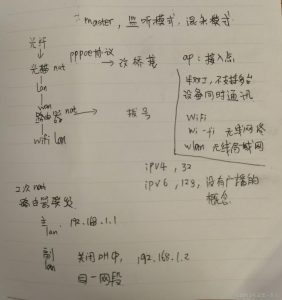 master, 监听模式, 混杂模式
光纤
↓ pppoe协议
光猫 nat → 改桥接
↓ lan
wan
路由器 nat → 拨号
↓
wifi lan
ap: 接入点
半双工, 不支持多台
设备同时通讯
WiFi
Wi-fi 无线网络
wlan 无线局域网
ipv4, 32
ipv6, 128, 没有广播的
概念
2次 nat
路由器
主 192.168.1.1
lan
副 关闭DHCP, 192.168.1.2
lan 同一网段